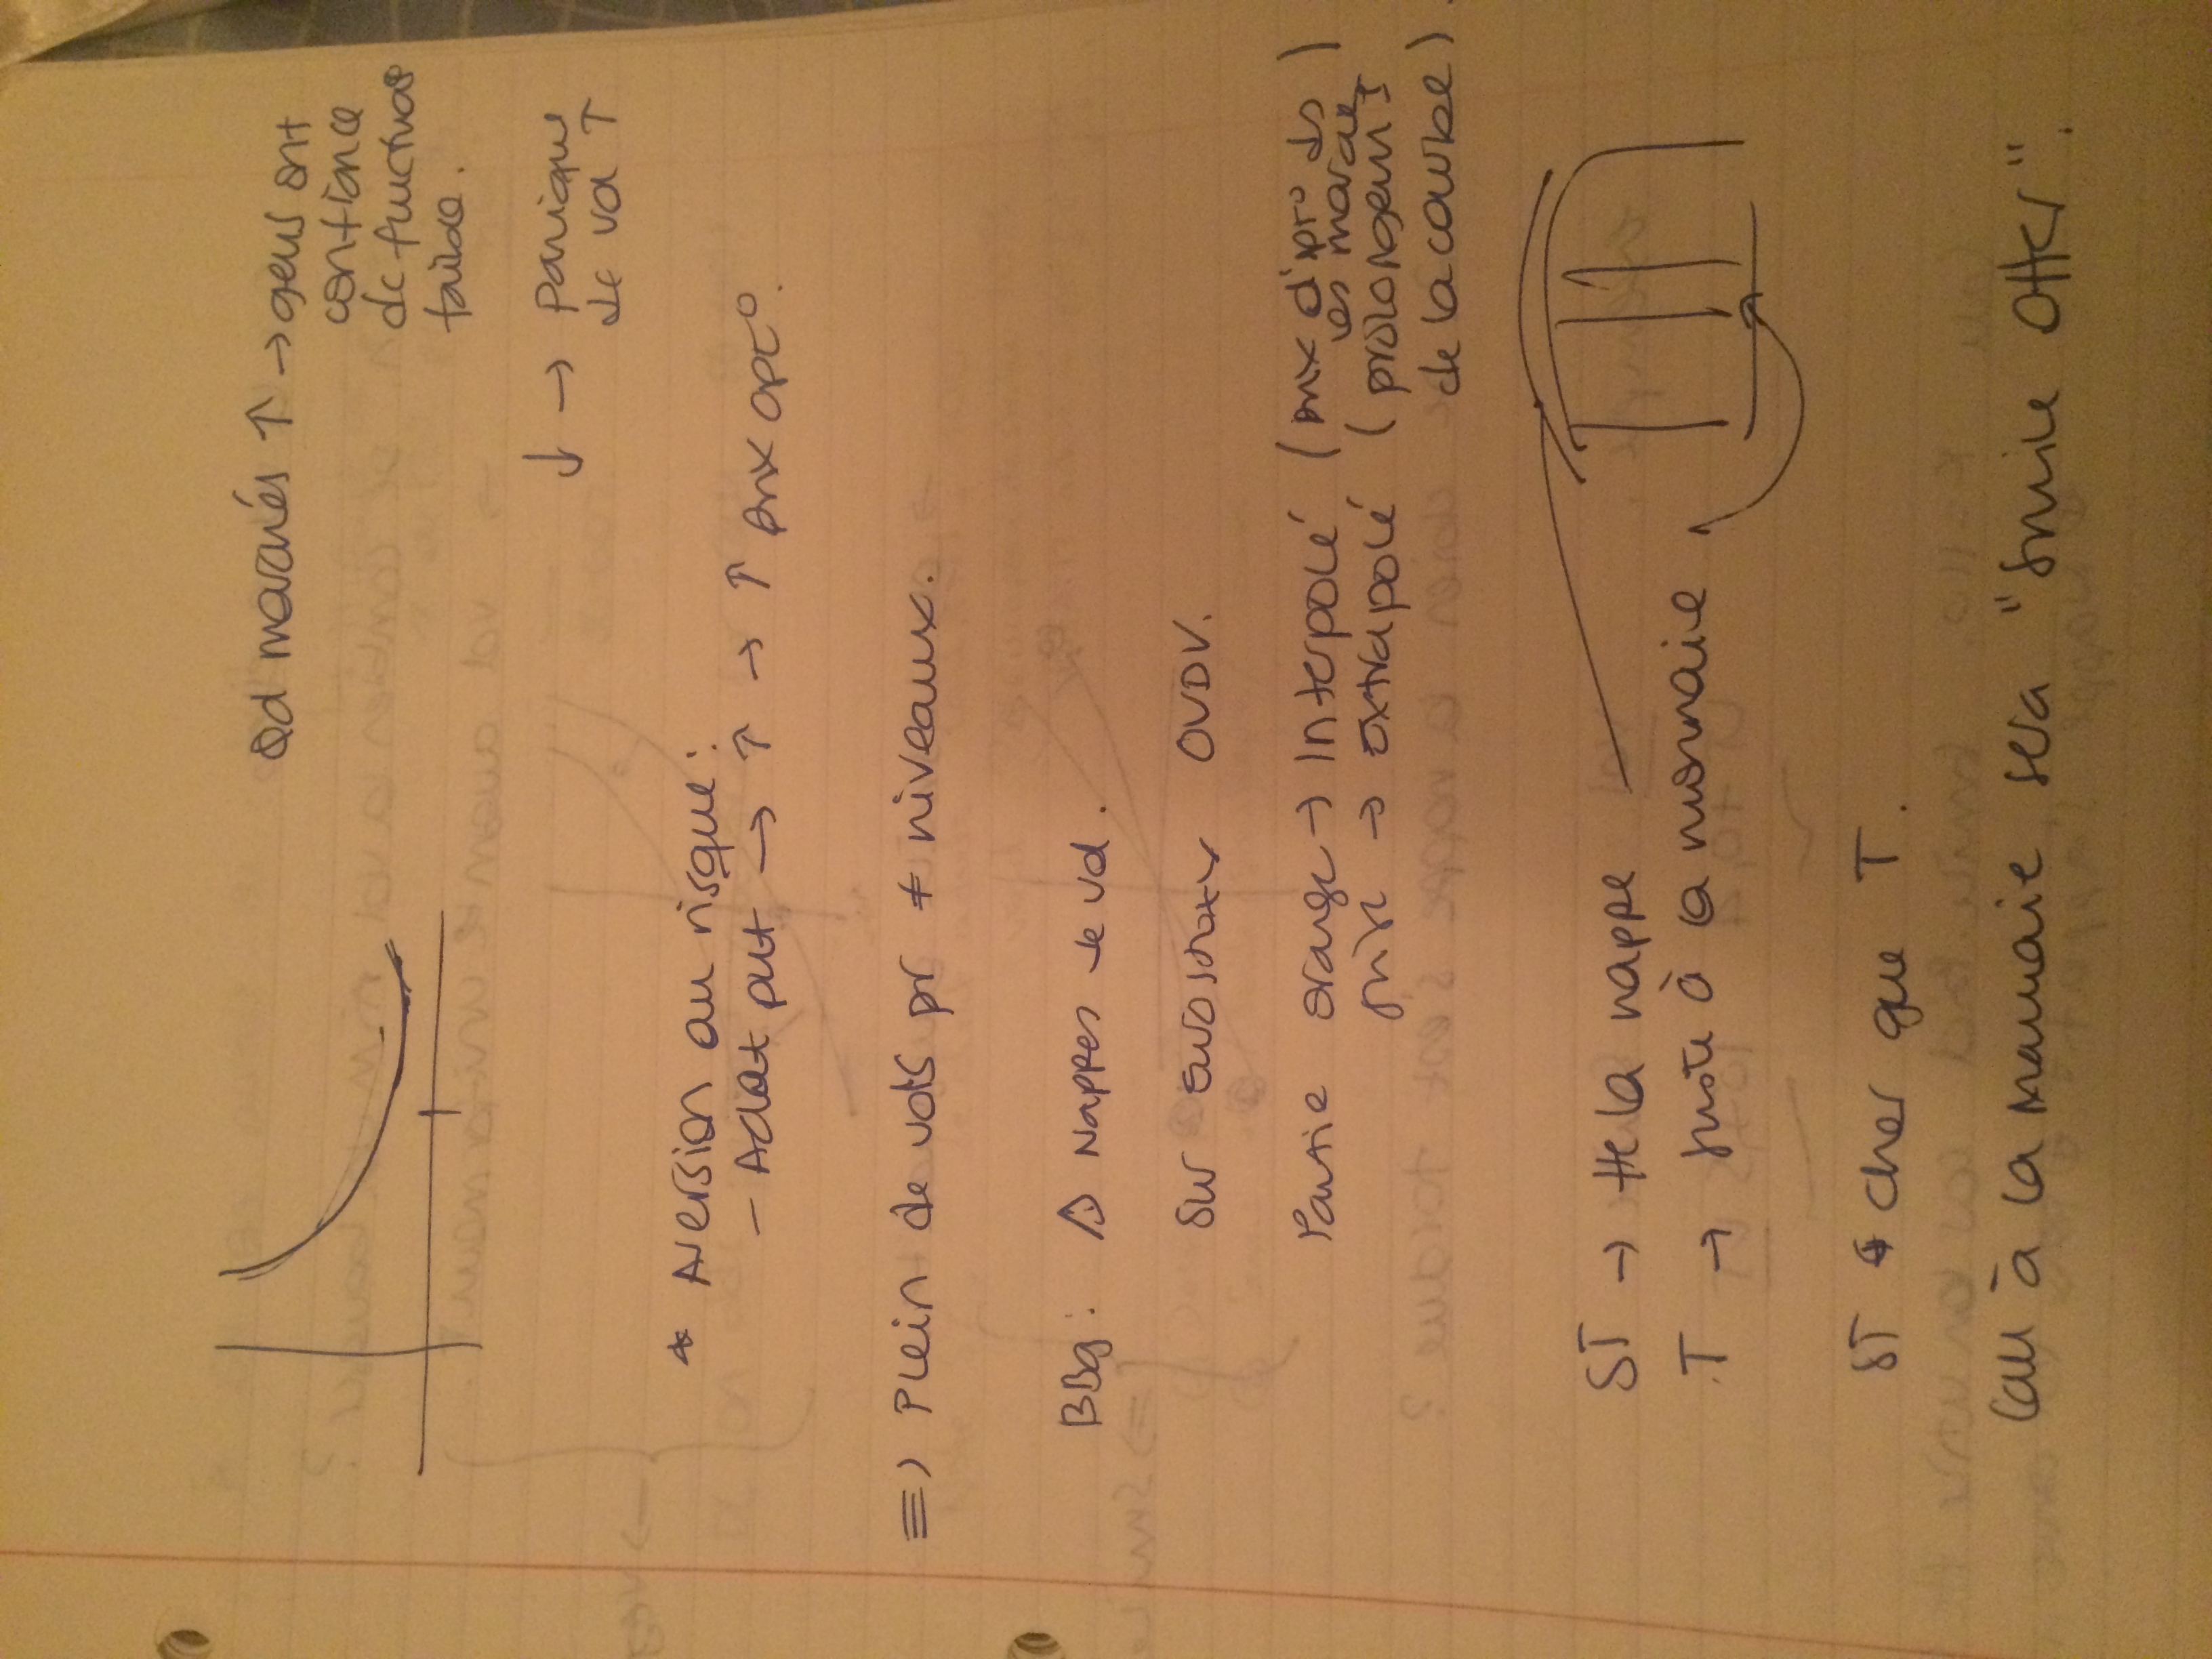 Qd marchés ↑ → gens ont
confiance
dc fluctuat°
faible.
↓ → panique
de vol ↑
* Aversion au risque:
- Achat put → ↑ → ↑ prix opt°.
=> Plein de vols pr ≠ niveaux.
BBg: Nappes de vol.
Sur Eurostoxx OVDV.
Partie orange → Interpolé (prix d'opt° ds
les marchés)
grise → extrapolé (prolongement
de la courbe).
ST → tte la nappe
T → juste à la monnaie
ST + cher que T.
Call à la monnaie sera "Smile Offer".